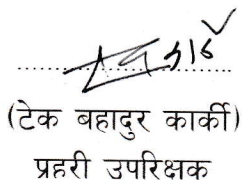 (टेक बहादुर कार्की)
प्रहरी उपरिक्षक